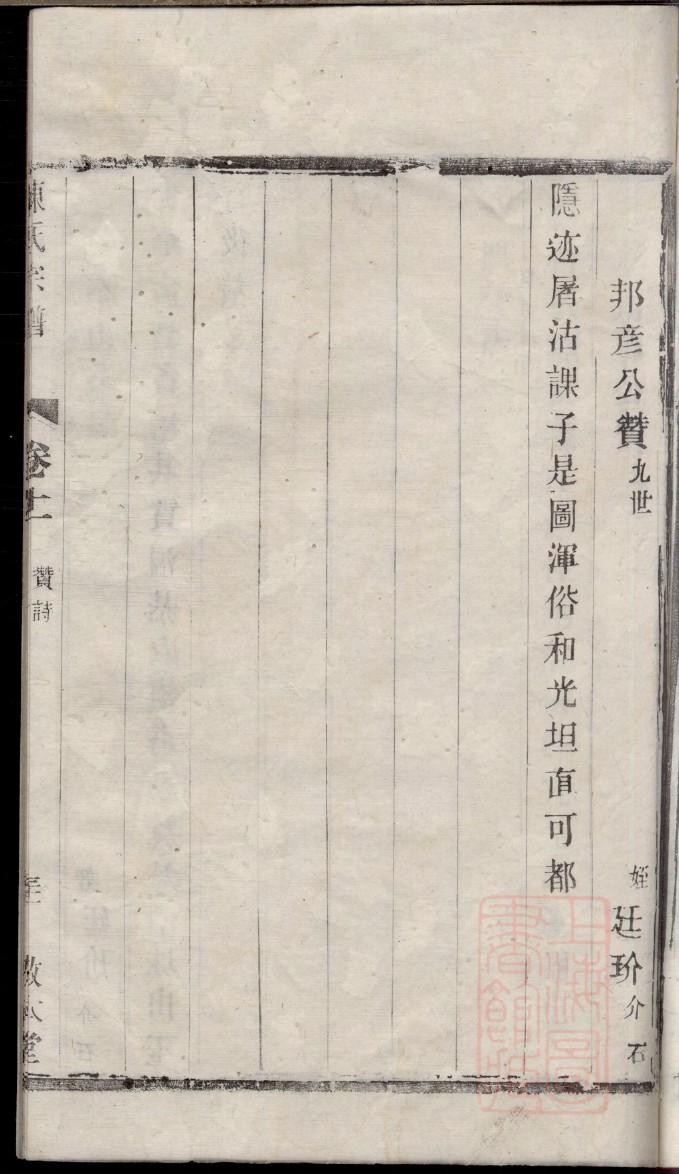 邦彦公贊 九世
姪 廷玠 介石
隱迹屠沽課子是圖渾俗和光坦直可都
陳氏宗譜 卷十一 贊詩 敦本堂
上海圖書館藏